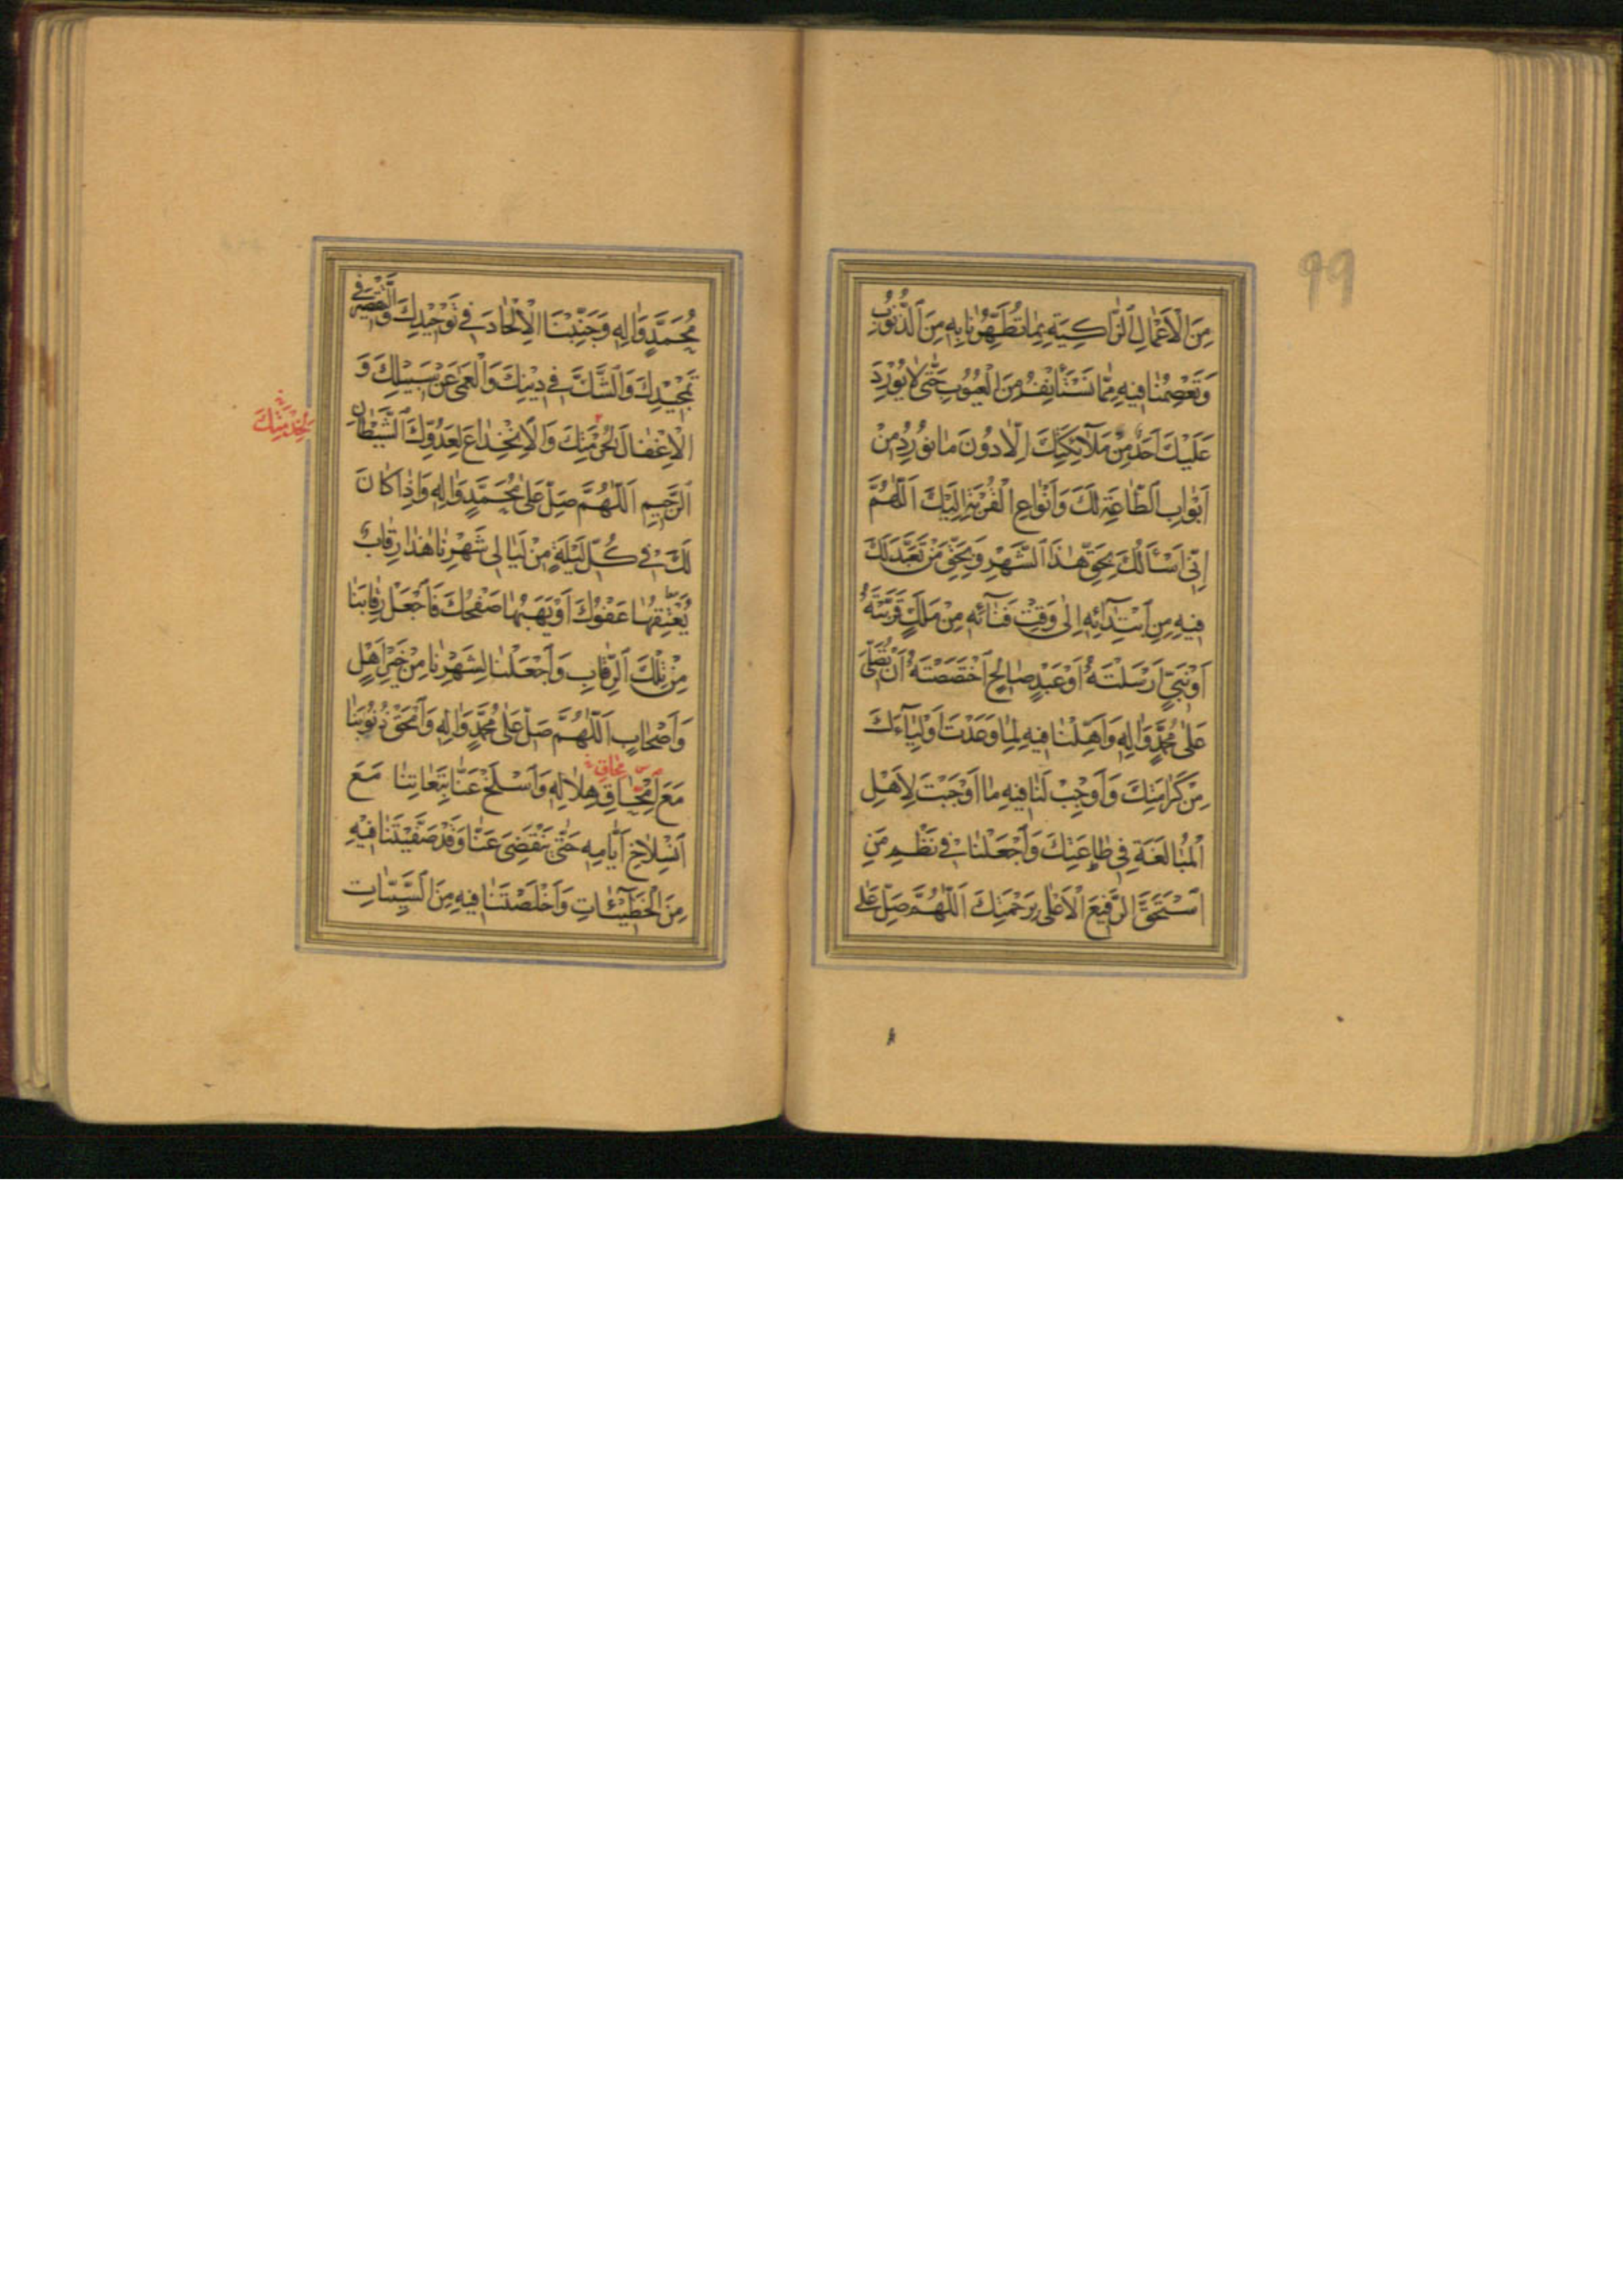 ٩٩
مِنَ الْاَعْمٰالِ الزّٰاكِيَةِ بِمٰا تُطَهِّرُنٰا بِهِ مِنَ الذُّنُوبِ
وَتَعْصِمُنٰا فيهِ مِمّٰا نَسْتَأْنِفُ مِنَ الْعُيُوبِ حَتّٰى لٰا يُورِدَ
عَلَيْكَ اَحَدٌ مِنْ مَلٰآئِكَتِكَ اِلّٰا دُونَ مٰا نُورِدُ مِنْ
اَبْوٰابِ الطّٰاعَةِ لَكَ وَاَنْوٰاعِ الْقُرْبَةِ اِلَيْكَ اَللّٰهُمَّ
اِنّى اَسْئَالُكَ بِحَقِّ هٰذَا الشَّهْرِ وَبِحَقِّ مَنْ تَعَبَّدَ لَكَ
فيهِ مِنِ ابْتِدٰآئِهِ اِلٰى وَقْتِ فَنٰآئِهِ مِنْ مَلَكٍ قَرَّبْتَهُ
اَوْ نَبِىٍّ اَرْسَلْتَهُ اَوْ عَبْدٍ صٰالِحٍ اخْتَصَصْتَهُ اَنْ تُصَلِّىَ
عَلٰى مُحَمَّدٍ وَاٰلِهِ وَاَهِّلْنٰا فيهِ لِمٰا وَعَدْتَ اَوْلِيٰآءَكَ
مِنْ كَرٰامَتِكَ وَاَوْجِبْ لَنٰا فيهِ مٰا اَوْجَبْتَ لِاَهْلِ
الْمُبٰالَغَةِ فى طٰاعَتِكَ وَاجْعَلْنٰا فى نَظْمِ مَنِ
اسْتَحَقَّ الرَّفيعَ الْاَعْلٰى بِرَحْمَتِكَ اَللّٰهُمَّ صَلِّ عَلٰى
مُحَمَّدٍ وَاٰلِهِ وَجَنِّبْنَا الْاِلْحٰادَ فى تَوْحيدِكَ وَالتَّقْصيرَ فى
تَمْجيدِكَ وَالشَّكَّ فى دينِكَ وَالْعَمٰى عَنْ سَبيلِكَ وَ
الْاِغْفٰالَ لِحُرْمَتِكَ وَالْاِنْخِدٰاعَ لِعَدُوِّكَ الشَّيْطٰانِ
لِخِدْمَتِكَ
الرَّجيمِ اَللّٰهُمَّ صَلِّ عَلٰى مُحَمَّدٍ وَاٰلِهِ وَاِذٰا كٰانَ
لَكَ فى كُلِّ لَيْلَةٍ مِنْ لَيٰالى شَهْرِنٰا هٰذٰا رِقٰابٌ
يُعْتِقُهٰا عَفْوُكَ اَوْ يَهَبُهٰا صَفْحُكَ فَاجْعَلْ رِقٰابَنٰا
مِنْ تِلْكَ الرِّقٰابِ وَاجْعَلْنٰا لِشَهْرِنٰا مِنْ خَيْرِ اَهْلٍ
وَاَصْحٰابٍ اَللّٰهُمَّ صَلِّ عَلٰى مُحَمَّدٍ وَاٰلِهِ وَامْحَقْ ذُنُوبَنٰا
مُحٰاقِ
مَعَ امِّحٰاقِ هِلٰالِهِ وَاسْلَخْ عَنّٰا تَبِعٰاتِنٰا مَعَ
انْسِلٰاخِ اَيّٰامِهِ حَتّٰى يَنْقَضِىَ عَنّٰا وَقَدْ صَفَّيْتَنٰا فيهِ
مِنَ الْخَطيٓئٰاتِ وَاَخْلَصْتَنٰا فيهِ مِنَ السَّيِّئٰاتِ